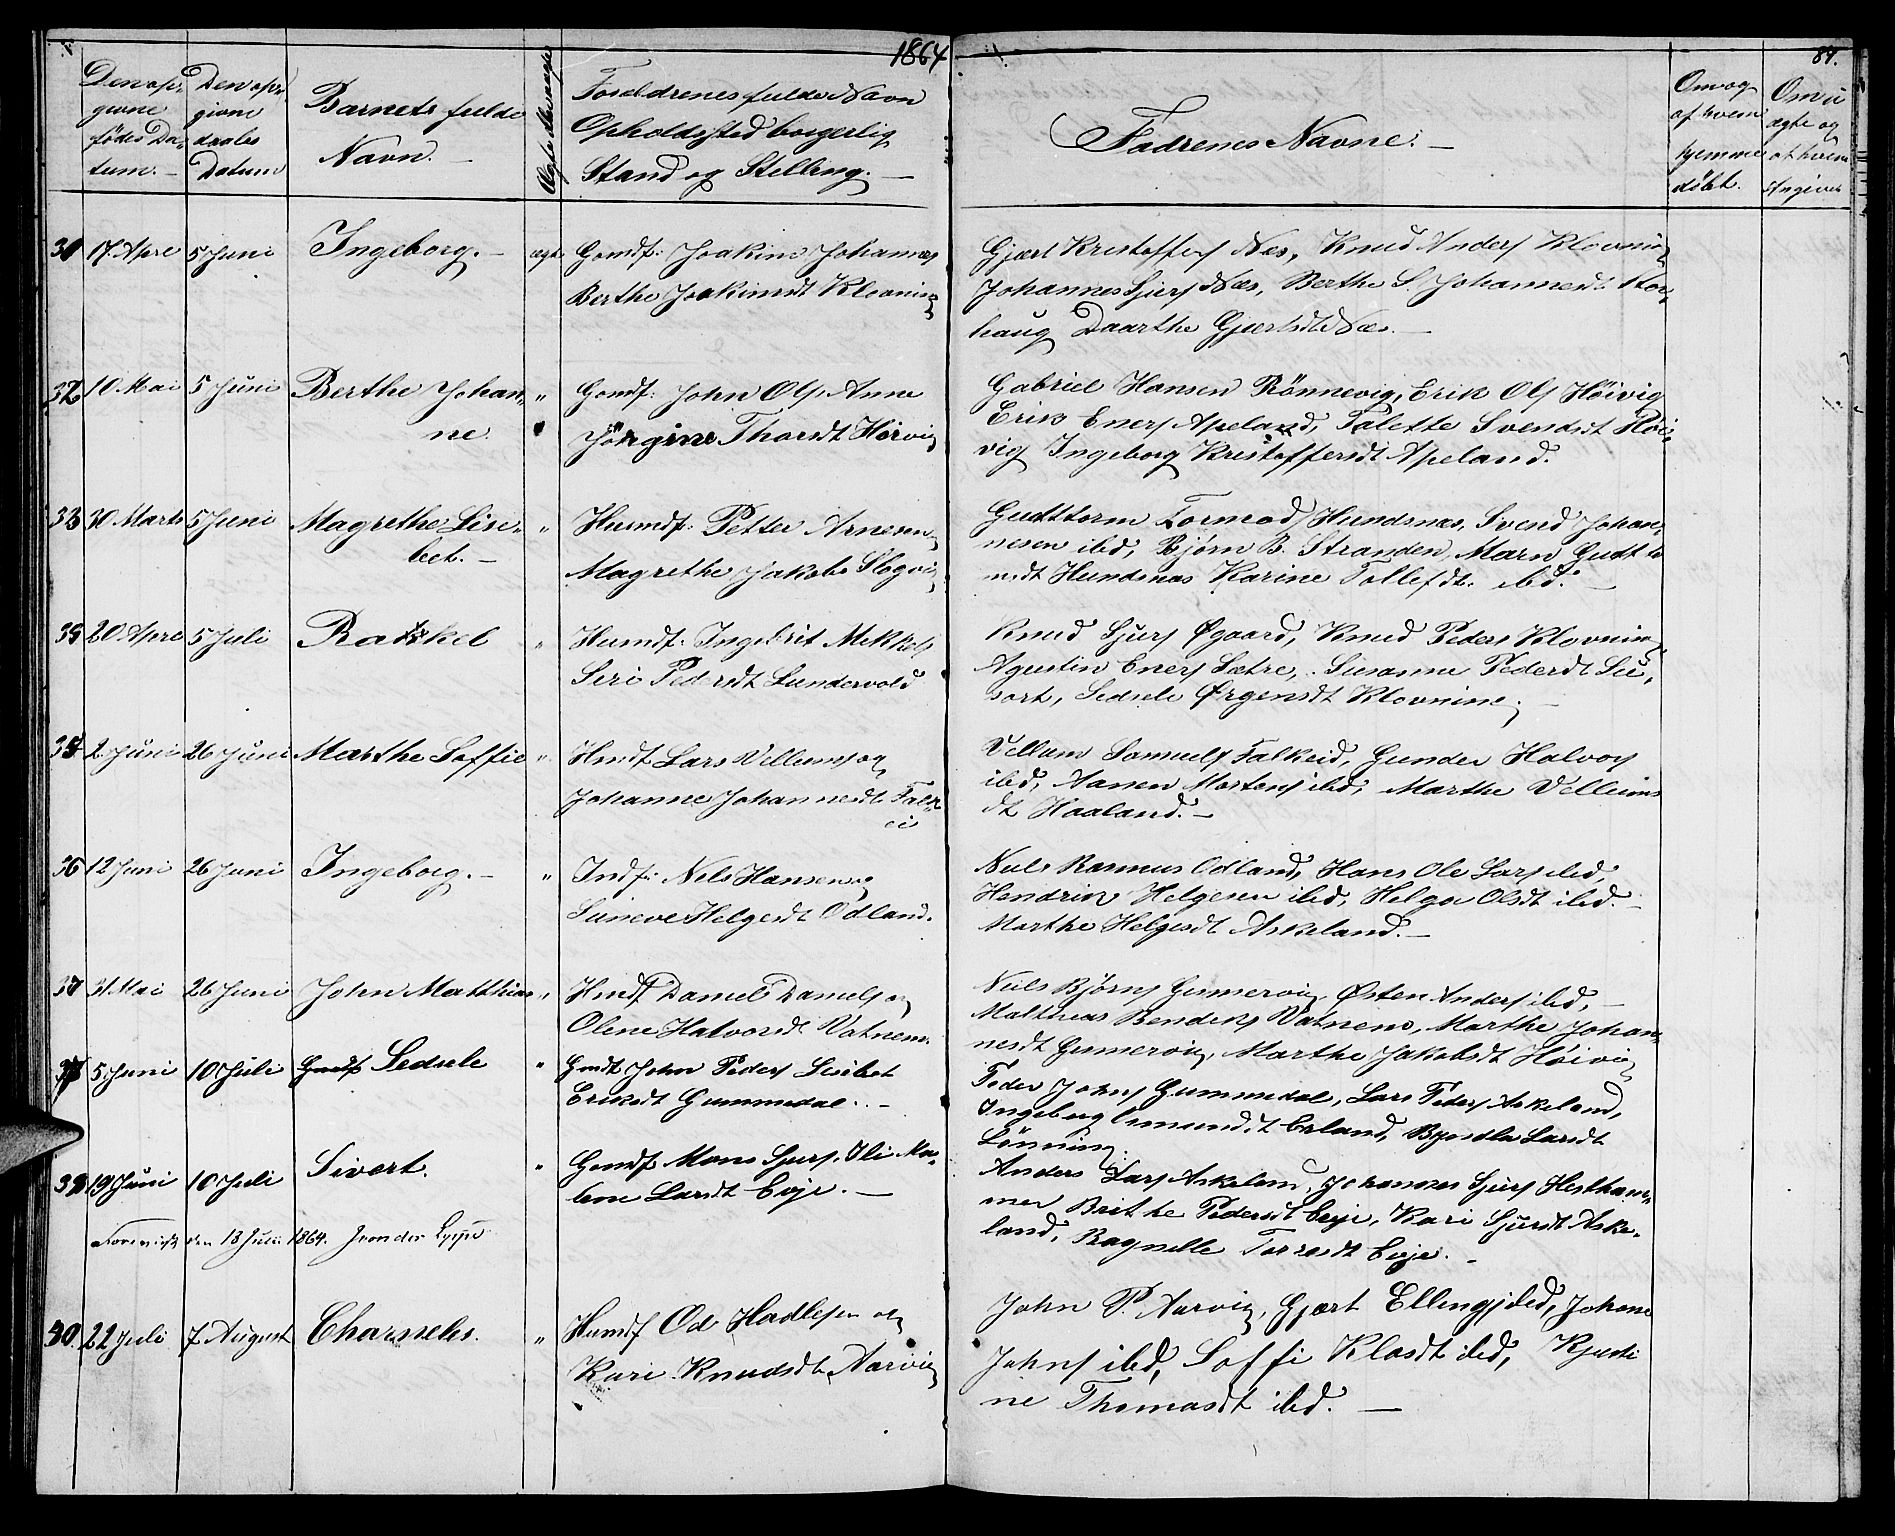 1864
84.
Den opgivne fødes Datum.
Den opgivne daabs Datum
Barnets fulde Navn.
Ægte eller uægte
Forældrenes fulde Navn
Opholdssted borgerlig
Stand og Stilling.
Fadrenes Navne.
Om og af hvem hjemme døbt.
Om uægte og af hvem Angiven
31 17 Apre 5 Juni Ingeborg. ægte Gamdf: Joakim Johannes
Berthe Joakimsdt Klovning
Gjært Kristoffers Næs, Knud Anders Klovning
Johannes Sjurs Næs, Berthe S. Johannesdt Stor,
haug Daarthe Gjærtsdt Næs.
32 10 Mai 5 Juni Berthe Johan,
ne. " Gamdf: John Ols, Anne
Jörgine Thordt Høivig
Gabriel Hansen Rönnevig, Erik Ols Höivig
Erik Eners Apeland, Talette Svendsdt Höi,
vig Ingeborg Kristoffersdt Apeland.
33 30 Marts 5 Juni Magrethe Lise,
bet. " Husmdf: Petter Arnesen
Magrethe Jakobs Slogvig
Gudttorm Tormods Hundsnæs, Svend Johan,
nesen ibd, Bjørn B. Stranden, Marn Gudtto
msdt Hundsnæs Karine Tollefdt. ibd.
34 20 Apre 5 Juli Rakkel " Husmdf: Ingebrit Mikkels
Siri Pedersdt Sundervold
Knud Sjurs Øgaard, Knud Peders Klovning
Agustin Eners Sætre, Susanne Pedersdt Su,
sort, Sedsele Ørgensdt Klovning
35 2 Juni 26 Juni Marthe Soffie " Hmdf Lars Vellums og
Johanne Johannesdt Falk
ei
Vellum Samuels Falkeid, Gunder Halvors
ibd, Aanen Mortens ibd, Marthe Vellums
dt Haaland.
36 12 Juni 26 Juni Ingeborg. " Indf: Nels Hansen og
Suneve Helgesdt Odland.
Neils Rasmus Odland, Hans Ole Lars ibd,
Hendrik Helgesen ibd, Helga Olsdt ibd.
Marthe Helgesdt Askeland.
37 31 Mai 26 Juni John Matthias " Hmdf Daniel Daniels og
Olene Halvorsdt Vatnem.
Neils Bjørns Gunnervig, Østen Anders ibd,
Matthias Bendiks Vatnem, Marthe Johan,
nesdt Gunnervig, Marthe Jakobsdt Höivig
5 Juni 10 Juli Sedsele " Gmdf John Peders Lisibet
Eriksdt Gummedal.
Peder Johns Gummedal, Lars Peders Askeland,
Ingeborg Osmundsdt Erland, Byndla Larsdt
Lönning.
39 19 Juni 10 Juli Sivert. " Gamdf Mons Sjurs, Ili Ma,
lene Larsdt Eeje.
Anders Lars Askeland, Johannes Sjurs Hestham,
mer Brithe Pedersdt Eeje, Kari Sjursdt Aske,
land, Ragnelle Torresdt Eeje.
den 13 Juli 1864.
40. 22 Juli 7 August Charnelus. " Husmdf Od Hadlesen og
Kari Knudsdt Aarvig
John P. Aarvig, Gjært Ellings ibd, Johane
Johns ibd, Soffi Klasdt ibd, Kjusti
ne Thomasdt ibd.